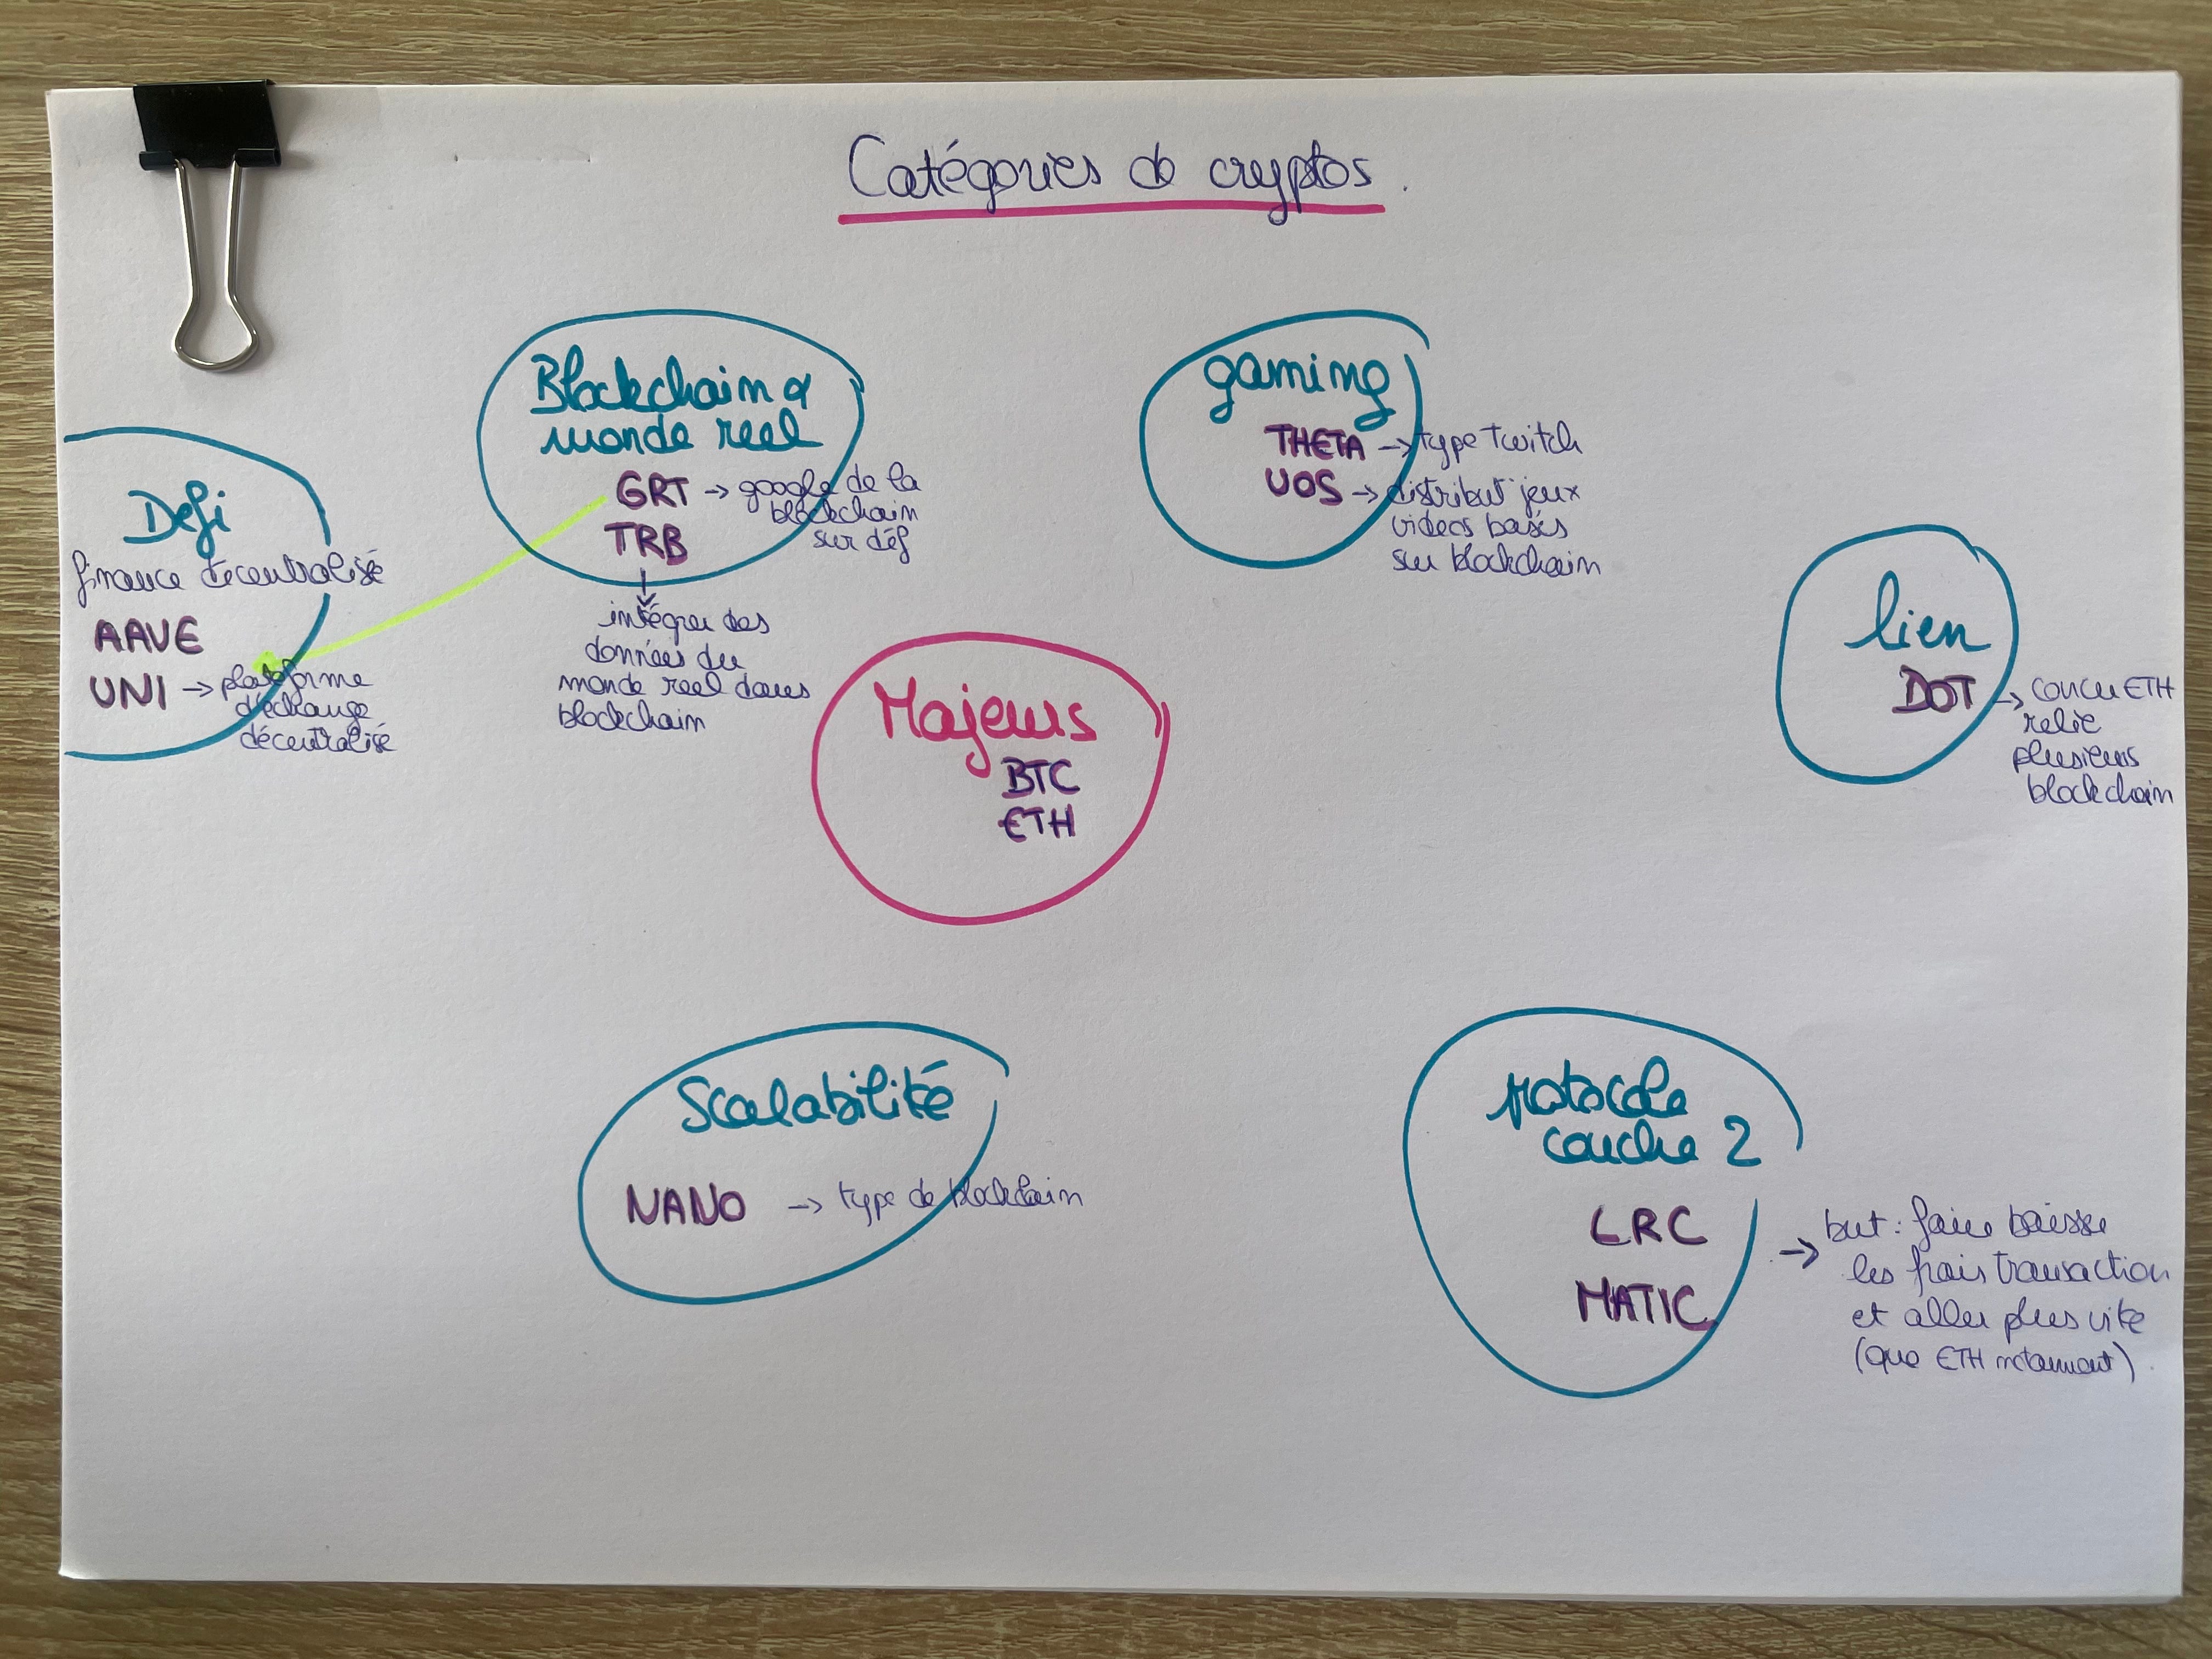 Catégories de cryptos.
Defi
finance décentralisé
AAVE
UNI → plateforme
d'échange
décentralisé
Blockchain &
monde reel
GRT → google de la
blockchain
sur déf
TRB
intégrer des
données du
monde reel dans
blockchain
gaming
THETA → type Twitch
UOS → distribut° jeux
videos basés
sur blockchain
Majeurs
BTC
ETH
lien
DOT → concu ETH
relie
plusieurs
blockchain
Scalabilité
NANO → type de blockchain
protocole
couche 2
LRC
MATIC
→ but : faire baisse
les frais transaction
et aller plus vite
(que ETH notamment).